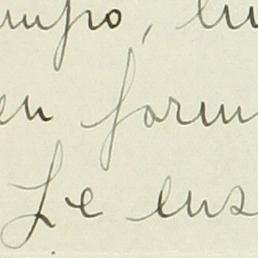 empo, lu
en form
Le ens